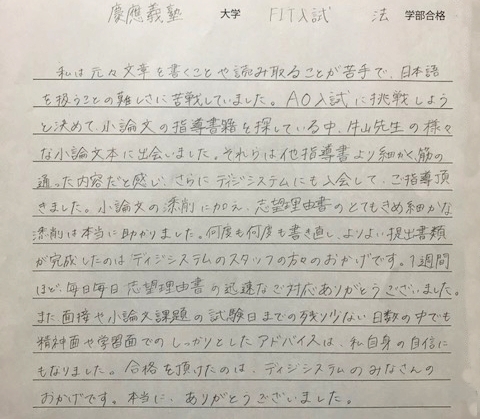 慶應義塾 大学 FIT入試 法 学部合格
私は元々文章を書くことや読み取ることが苦手で、日本語
を扱うことの難しさに苦戦していました。AO入試に挑戦しよう
と決めて、小論文の指導書籍を探している中、牛山先生の様々
な小論文本に出会いました。それらは他指導書より細かく、筋の
通った内容だと感じ、さらにディジシステムにも入会して、ご指導頂
きました。小論文の添削に加え、志望理由書のとてもきめ細かな
添削は本当に助かりました。何度も何度も書き直し、よりよい提出書類
が完成したのはディジシステムのスタッフの方々のおかげです。1週間
ほど、毎日毎日志望理由書の迅速なご対応ありがとうございました。
また面接や小論文課題の試験日までの残り少ない日数の中でも
精神面や学習面でのしっかりとしたアドバイスは、私自身の自信に
もなりました。合格を頂けたのは、ディジシステムのみなさんの
おかげです。本当に、ありがとうございました。